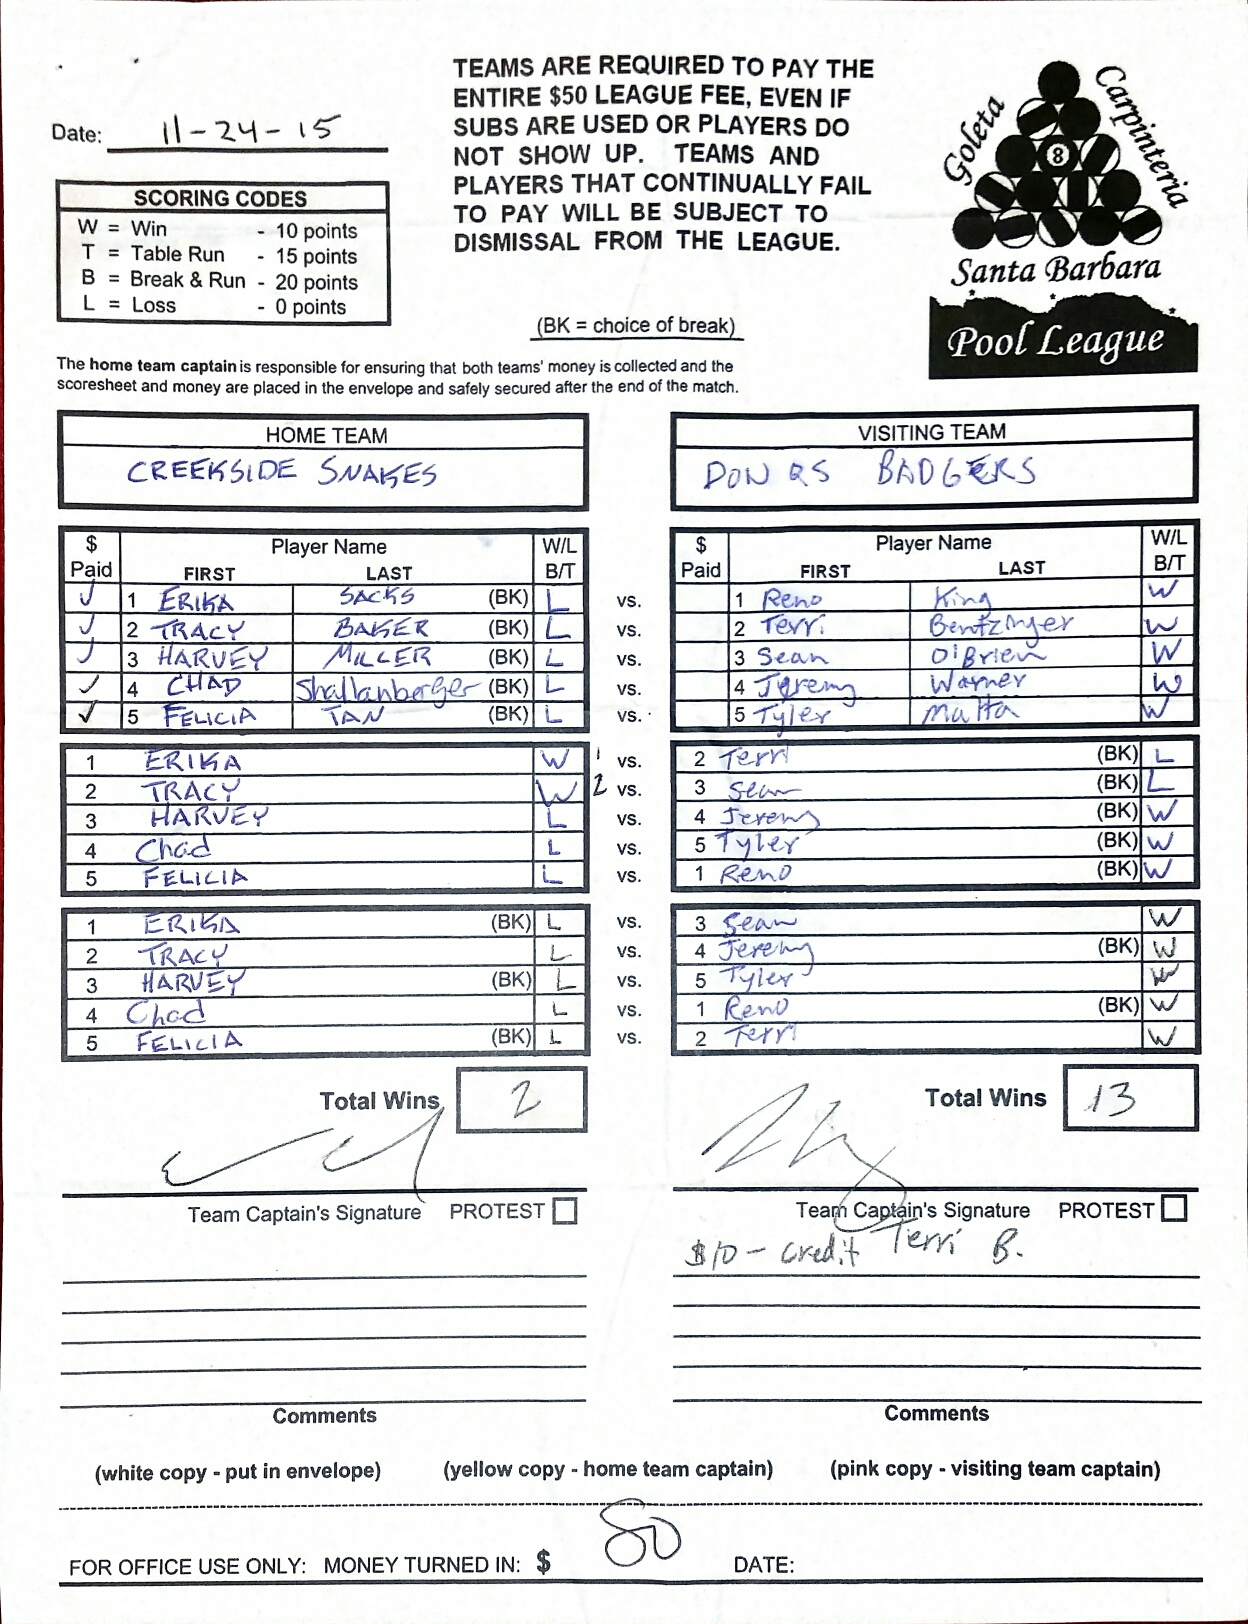 TEAMS ARE REQUIRED TO PAY THE
ENTIRE $50 LEAGUE FEE, EVEN IF
SUBS ARE USED OR PLAYERS DO
NOT SHOW UP. TEAMS AND
PLAYERS THAT CONTINUALLY FAIL
TO PAY WILL BE SUBJECT TO
DISMISSAL FROM THE LEAGUE.
Goleta
Carpinteria
8
Santa Barbara
Pool League
Date: 11-24-15
SCORING CODES
W = Win - 10 points
T = Table Run - 15 points
B = Break & Run - 20 points
L = Loss - 0 points
(BK = choice of break)
The home team captain is responsible for ensuring that both teams' money is collected and the
scoresheet and money are placed in the envelope and safely secured after the end of the match.
HOME TEAM VISITING TEAM
CREEKSIDE SNAKES BADGERS
$ Player Name W/L $ Player Name W/L
Paid FIRST LAST B/T Paid FIRST LAST B/T
✓ 1 ERIKA SACKS (BK) L vs. 1 Reno King W
✓ 2 TRACY BAKER (BK) L vs. 2 Terri Bentzinger W
✓ 3 HARVEY MILLER (BK) L vs. 3 Sean O'Brien W
✓ 4 CHAD Shallanberger (BK) L vs. 4 Jeremy Warner W
✓ 5 FELICIA TAN (BK) L vs. 5 Tyler Matta W
1 ERIKA W 1 vs. 2 Terri (BK) L
2 TRACY W 2 vs. 3 Sean (BK) L
3 HARVEY L vs. 4 Jeremy (BK) W
4 Chad L vs. 5 Tyler (BK) W
5 FELICIA L vs. 1 Reno (BK) W
1 ERIKA (BK) L vs. 3 Sean W
2 TRACY L vs. 4 Jeremy (BK) W
3 HARVEY (BK) L vs. 5 Tyler W
4 Chad L vs. 1 Reno (BK) W
5 FELICIA (BK) L vs. 2 Terri W
Total Wins 2 Total Wins 13
Team Captain's Signature PROTEST Team Captain's Signature PROTEST
$10 - credit Terri B.
Comments Comments
(white copy - put in envelope) (yellow copy - home team captain) (pink copy - visiting team captain)
FOR OFFICE USE ONLY: MONEY TURNED IN: $ 80 DATE: